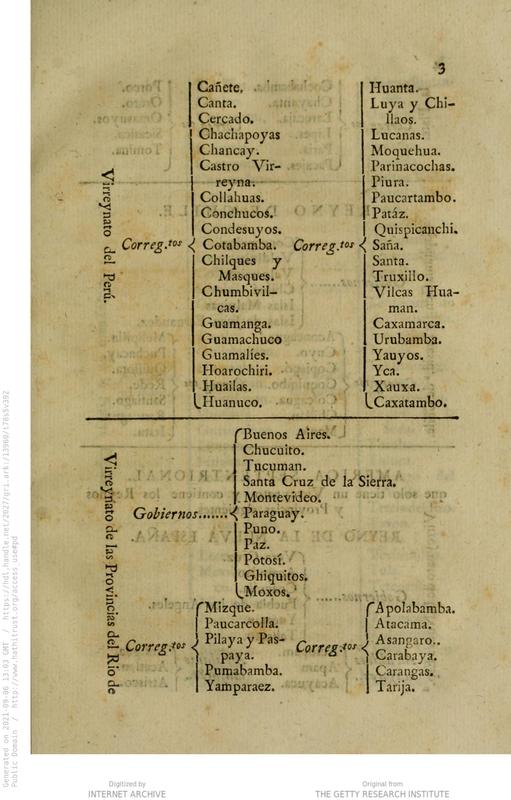 3
Virreynato del Perú.
Correg.tos
Cañete.
Canta.
Cercado.
Chachapoyas
Chancay.
Castro Vir-
reyna.
Collahuas.
Conchucos.
Condesuyos.
Cotabamba.
Chilques y
Masques.
Chumbivil-
cas.
Guamanga.
Guamachuco
Guamalíes.
Hoarochiri.
Huailas.
Huanuco.
Correg.tos
Huanta.
Luya y Chi-
llaos.
Lucanas.
Moquehua.
Parinacochas.
Piura.
Paucartambo.
Patáz.
Quispicanchi.
Saña.
Santa.
Truxillo.
Vilcas Hua-
man.
Caxamarca.
Urubamba.
Yauyos.
Yca.
Xauxa.
Caxatambo.
Virreynato de las Provincias del Rio de
Gobiernos.......
Buenos Aires.
Chucuito.
Tucuman.
Santa Cruz de la Sierra.
Montevideo.
Paraguay.
Puno.
Paz.
Potosí.
Ghiquitos.
Moxos.
Correg.tos
Mizque.
Paucarcolla.
Pilaya y Pas-
paya.
Pumabamba.
Yamparaez.
Correg.tos
Apolabamba.
Atacama.
Asangaro..
Carabaya.
Carangas.
Tarija.
Generated on 2021-09-06 13:03 GMT / https://hdl.handle.net/2027/gri.ark:/13960/t78s5v392
Public Domain / http://www.hathitrust.org/access_use#pd
Digitized by
INTERNET ARCHIVE
Original from
THE GETTY RESEARCH INSTITUTE